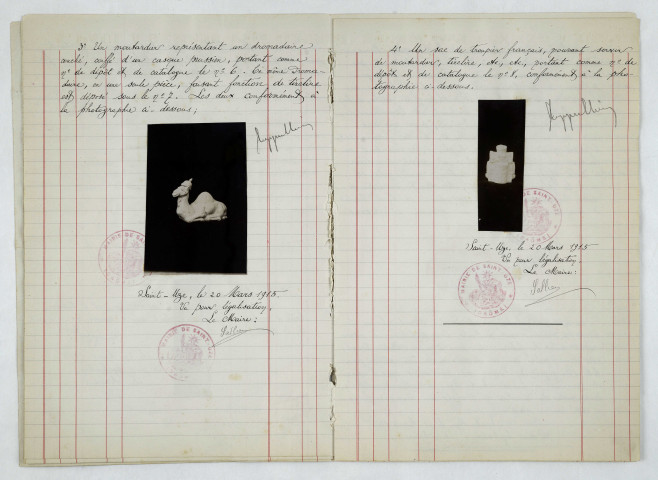 3º Un moutardier représentant un dromadaire
couché, coiffé d'un casque prussien, portant comme
nº de dépôt et de catalogue le nº 6. - Ce même Droma-
daire, en une seule pièce, faisant fonction de tirelire
est déposé sous le nº 7. Les deux conformément à
la photographie ci-dessous;
MAIRIE DE SAINT-UZE
Saint-Uze, le 20 Mars 1915
Vu pour légalisation,
Le Maire:
MAIRIE DE SAINT-UZE
4º Un sac de troupier français, pouvant servir
de moutardier, tirelire, etc, etc, portant comme nº de
dépôt et de catalogue le nº 8, conformément à la pho-
tographie ci-dessous.
Saint-Uze, le 20 Mars 1915
Vu pour légalisation,
Le Maire:
MAIRIE DE SAINT-UZE